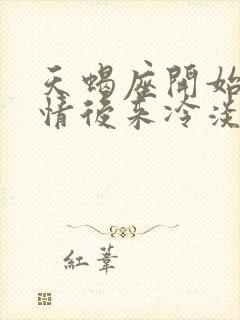 天蝎座開始
情後来冷淡
紅葦